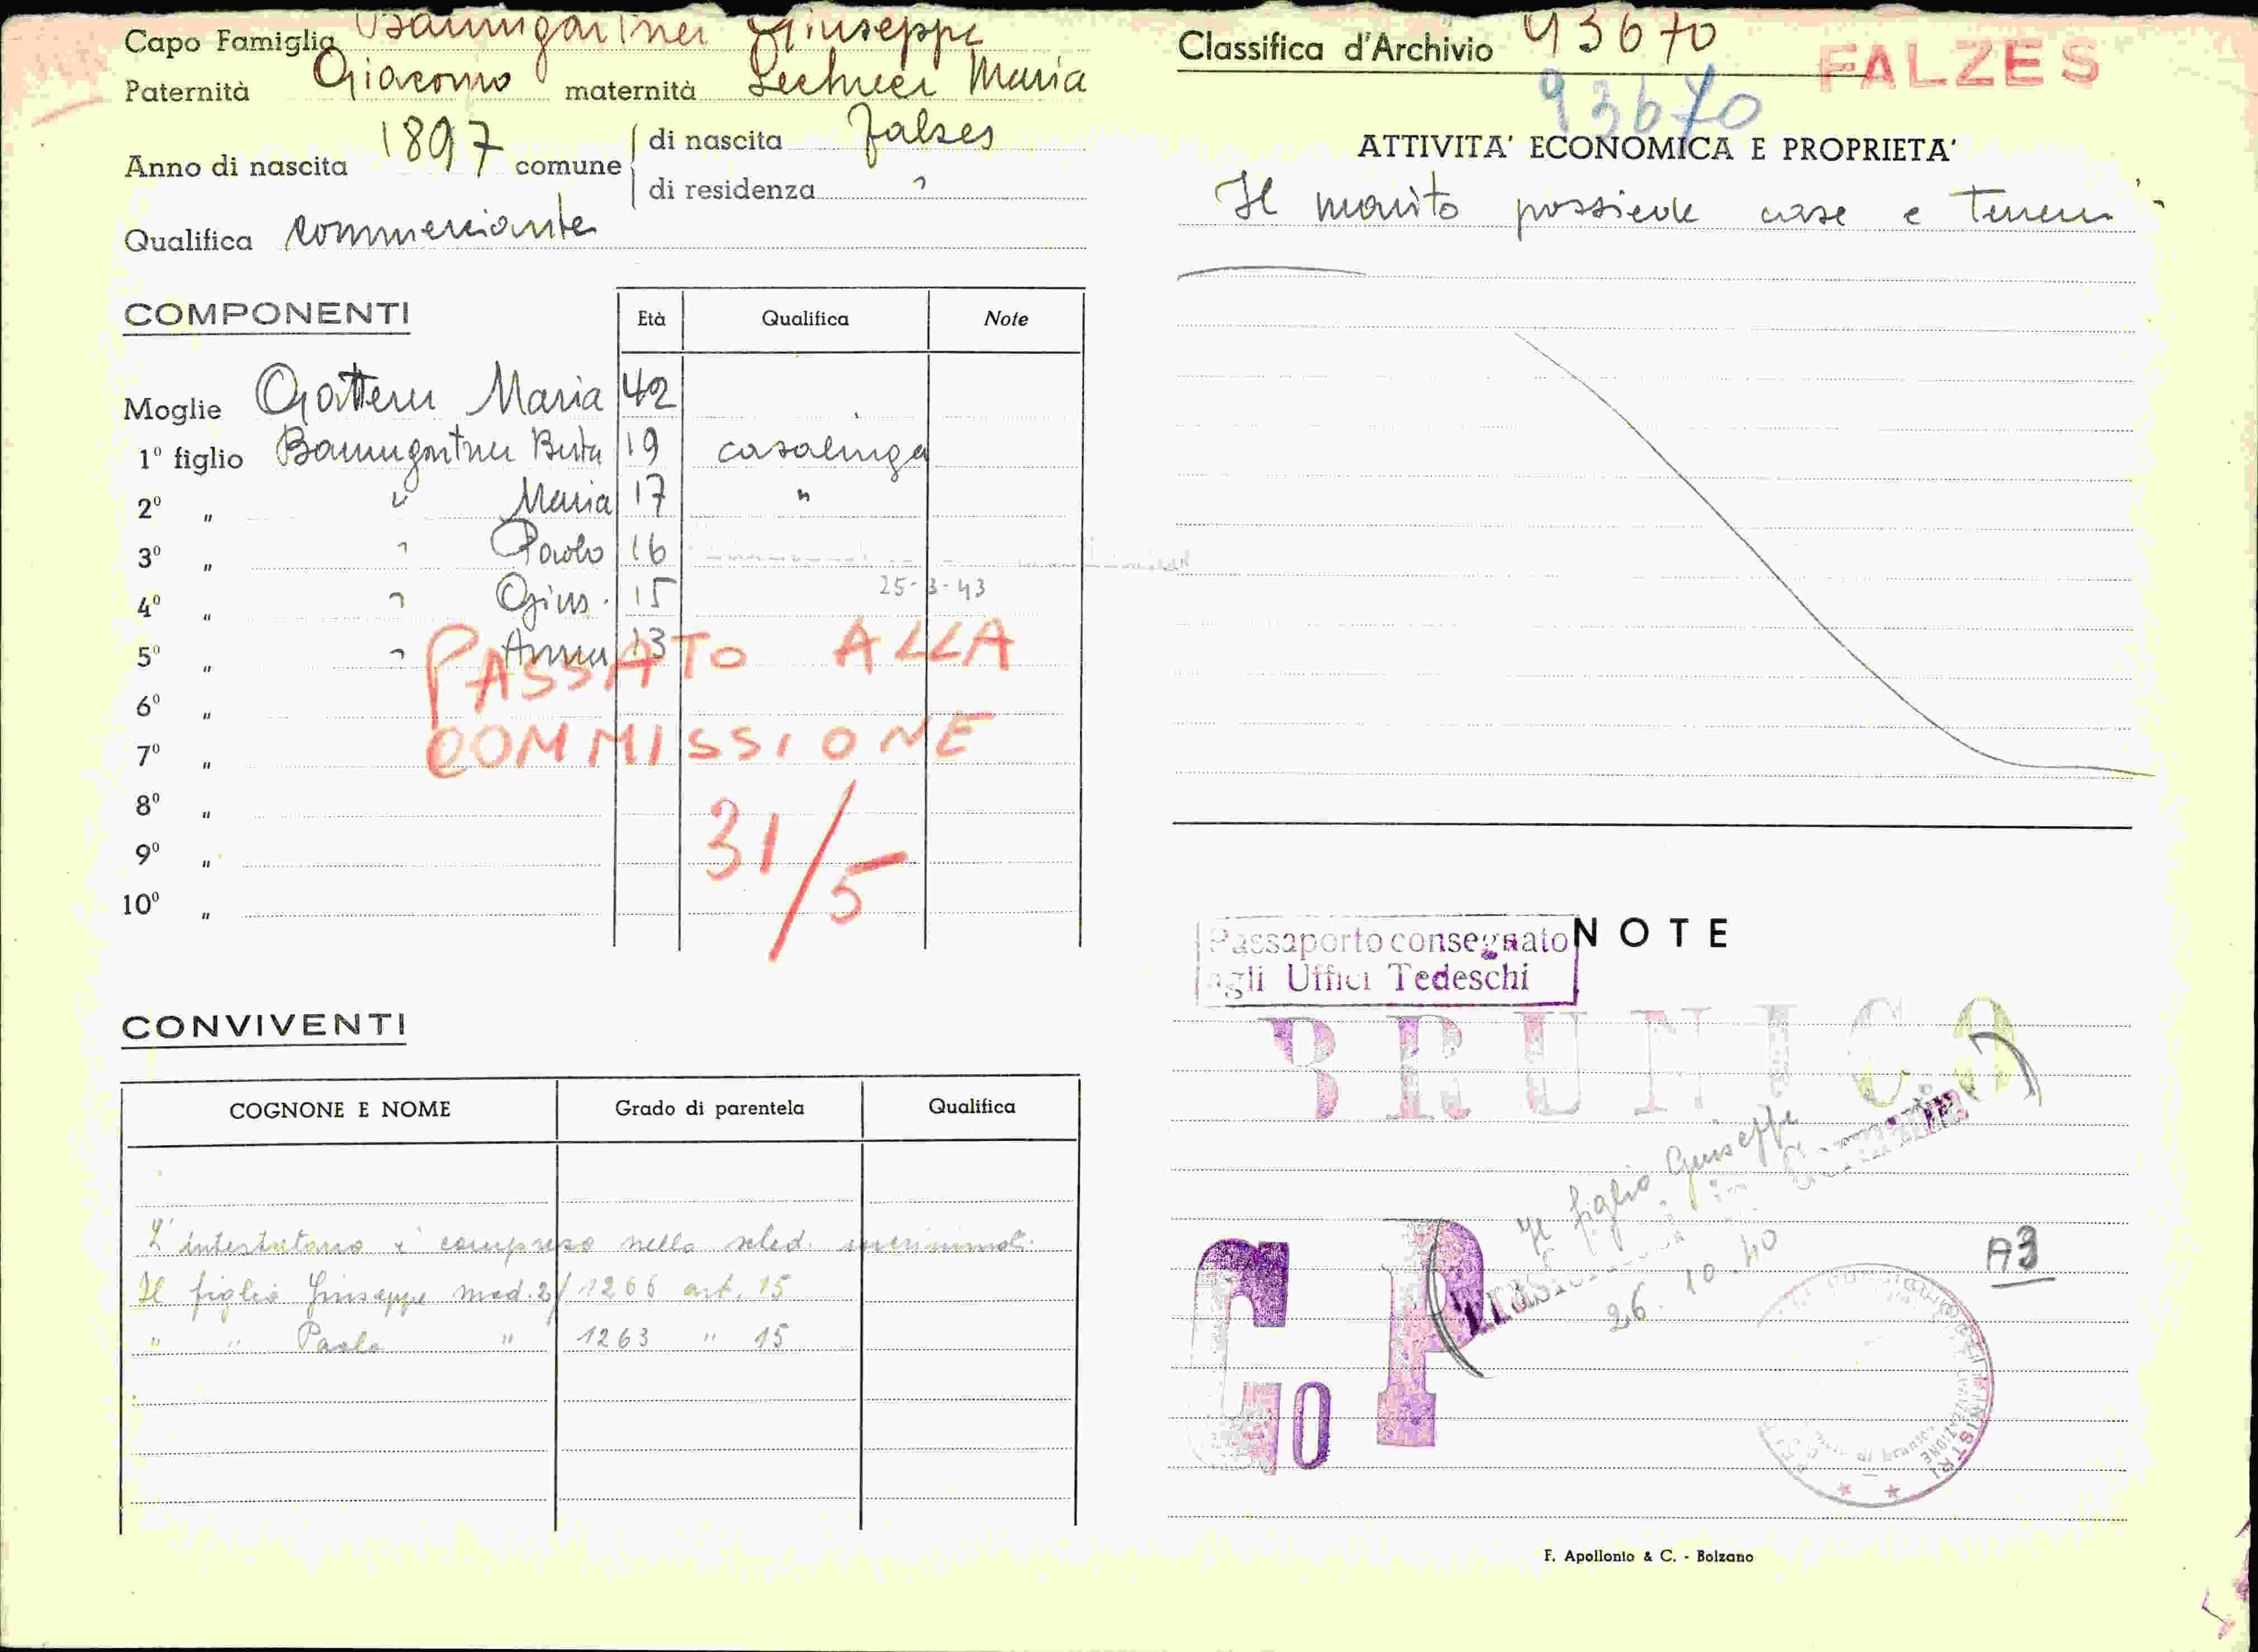 Capo Famiglia Baumgartner Giuseppe
Paternità Giacomo maternità Lechner Maria
Anno di nascita 1897 comune di nascita Falzes
di residenza "
Qualifica commerciante
COMPONENTI Età Qualifica Note
Moglie Gatterer Maria 42
1º figlio Baumgartner Berta 19 casalinga
2º " " Maria 17 "
3º " " Paolo 16
4º " " Gius. 15 25-3-43
5º " " Anna 13
6º "
7º "
8º "
9º "
10º "
PASSATO ALLA
COMMISSIONE
31/5
CONVIVENTI
COGNONE E NOME Grado di parentela Qualifica
L'intestatario è compreso nello sched.
Il figlio Giuseppe mod. 2/1266 art. 15
" " Paolo " 1263 " 15
Classifica d'Archivio 93670
FALZES
93670
ATTIVITA' ECONOMICA E PROPRIETA'
Il marito possiede case e terreni
NOTE
Passaporto consegnato
agli Uffici Tedeschi
BRUNICO
Il figlio Giuseppe
26.10.40
A3
GP
10
F. Apollonio & C. - Bolzano